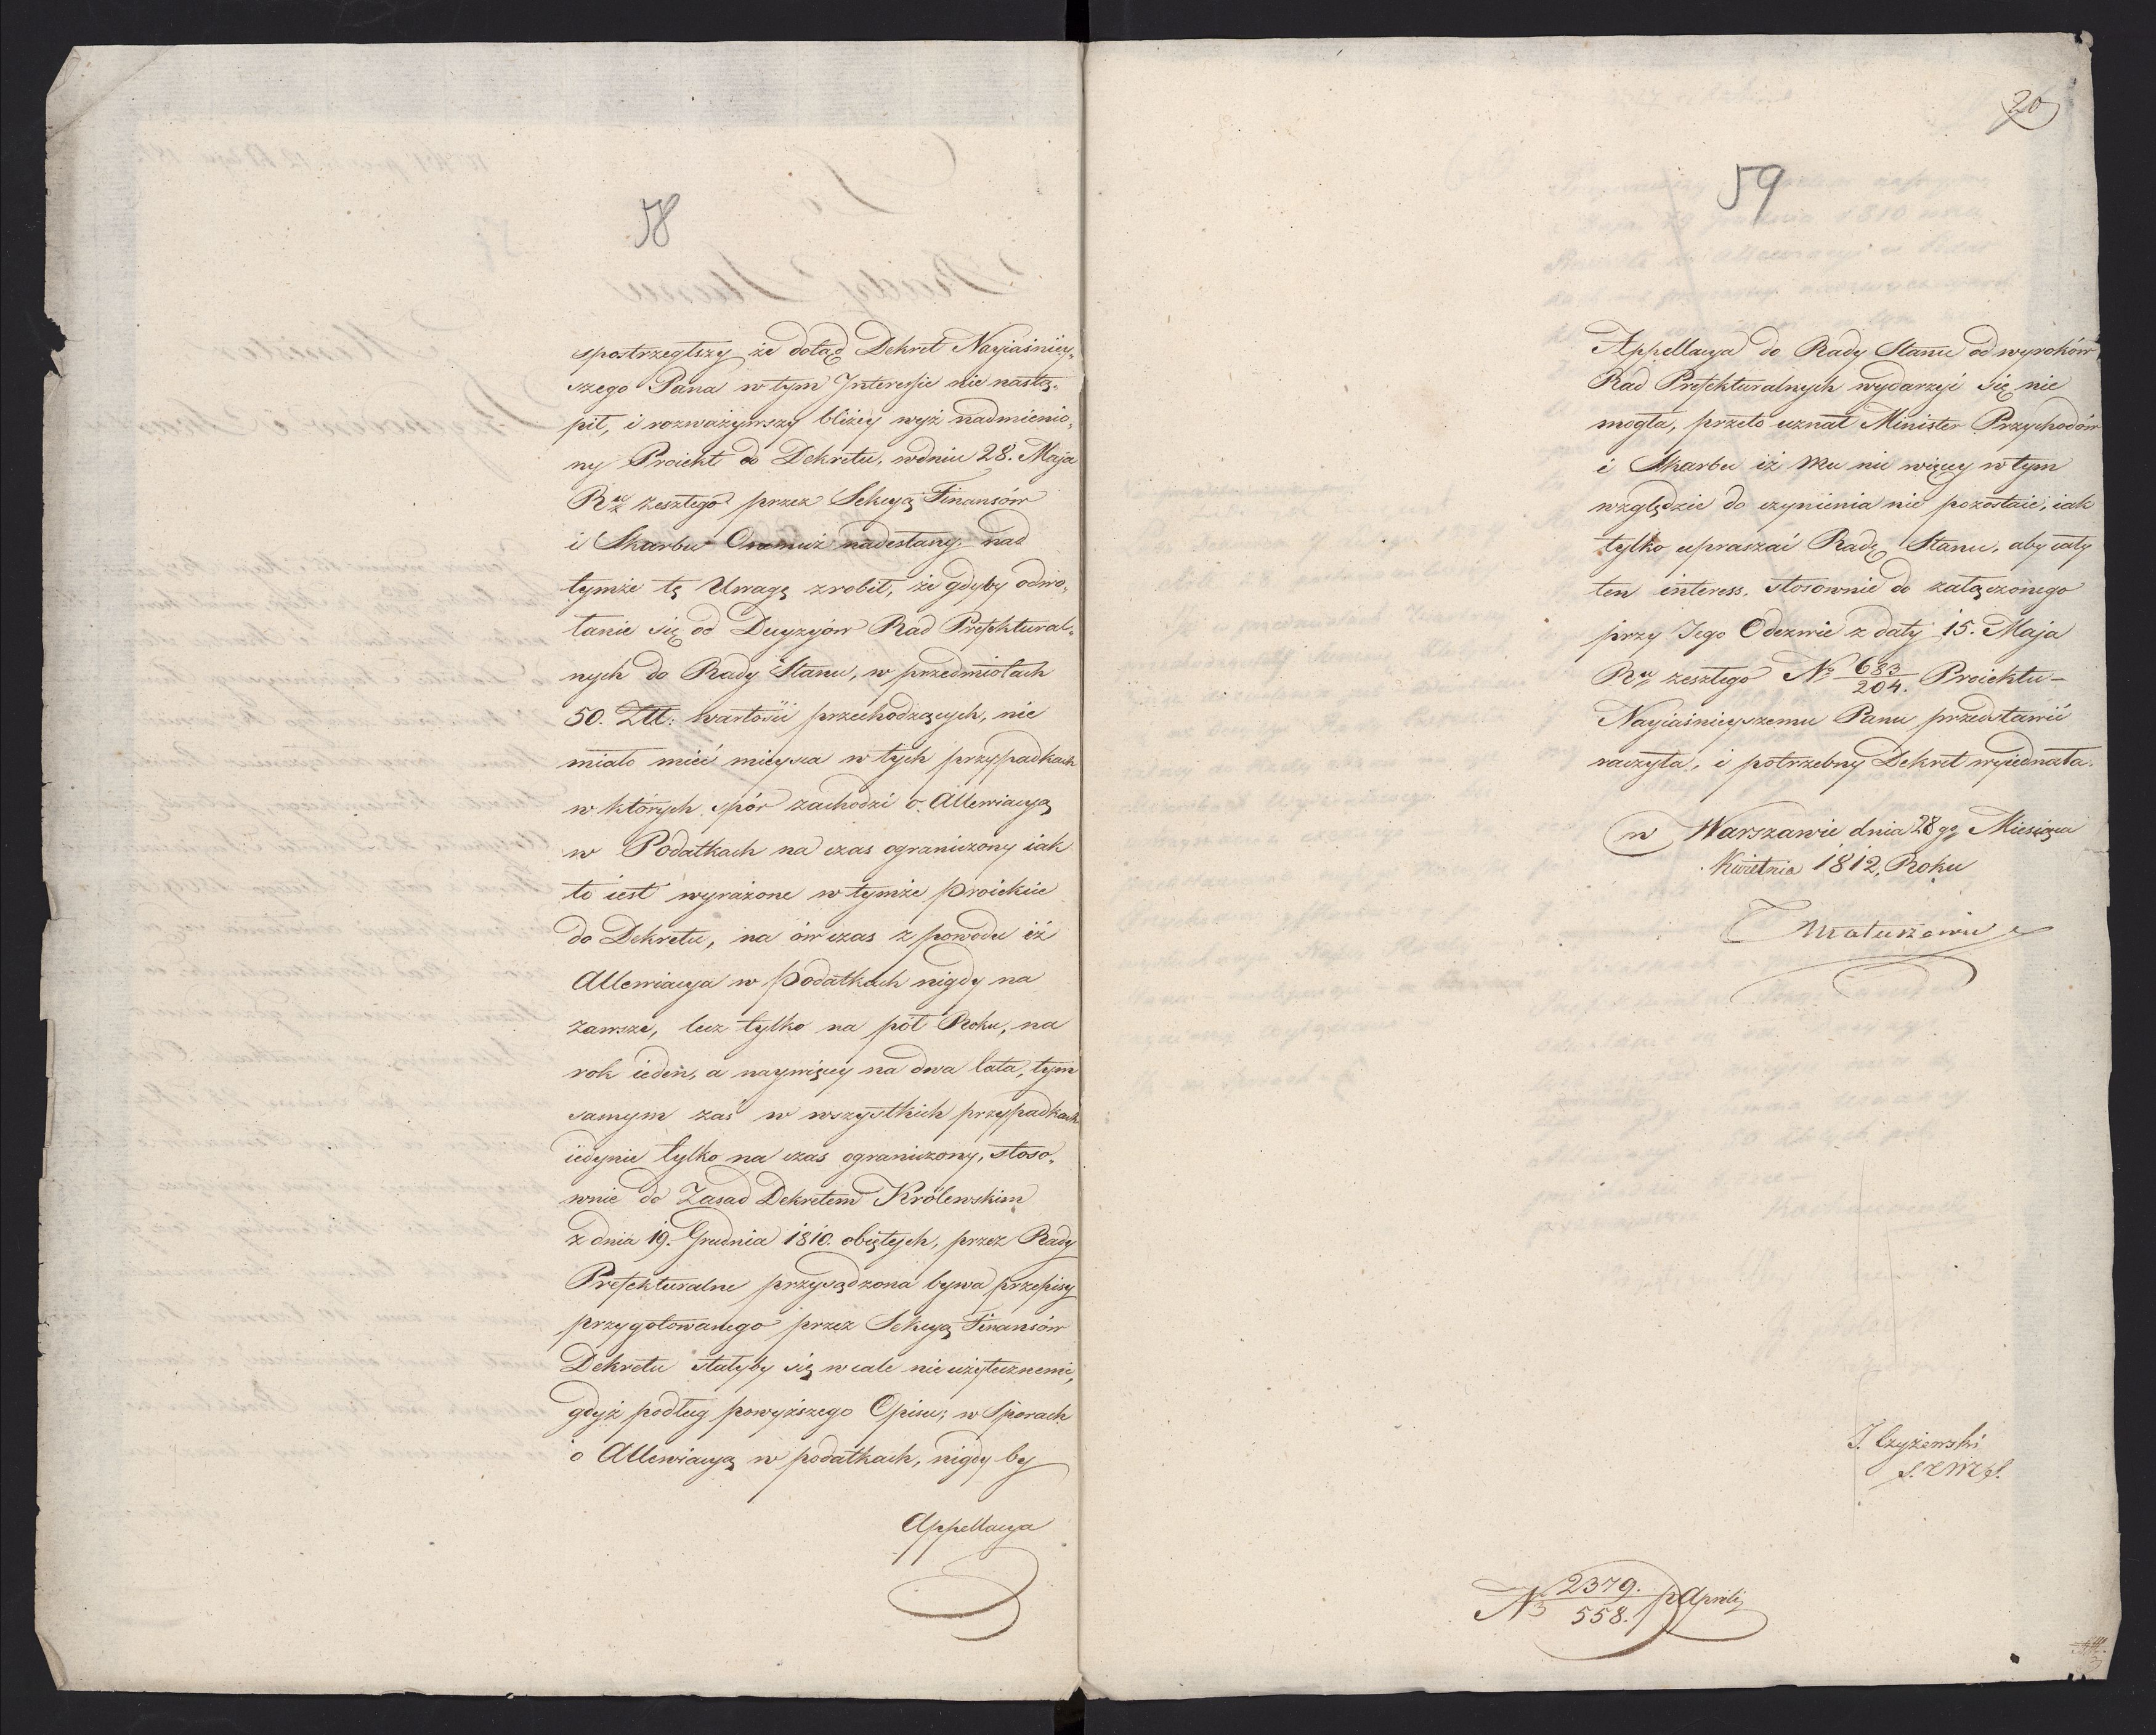 58
spostrzegłszy że dotąd Dekret Nayiaśniey„
szego Pana w tym Interessie nie nastą„
pił, i rozważywszy bliżey wyż nadmienio„
ny Proiekt do Dekretu, w dniu 28. Maja
Ru zeszłego przez Sekcyą Finansów
i Skarbu Onemuż nadesłany nad
tymże tę Uwagę zrobił, że gdyby odwo„
łanie się od Decyzyów Rad Prefektural„
nych do Rady Stanu, w przedmiotach
50. Złł: wartości przechodzących, nie
miało mieć mieysca w tych przypadkach
w których spór zachodzi o Allewiacyą
w Podatkach na czas ograniczony iak
to iest wyrażone w tymże Proiekcie
do Dekretu, na ów czas z powodu iż
Allewiacya w Podatkach nigdy na
zawsze, lecz tylko na pół Roku, na
rok ieden, a naywięcy na dwa lata, tym
samym zaś w wszystkich przypadkach
iedynie tylko na czas ograniczony, stoso„
wnie do Zasad Dekretem Królewskim
z dnia 19. Grudnia 1810. obiętych, przez Rady
Prefekturalne przysądzona bywa przepisy
przygotowanego przez Sekcyą Finansów
Dekretu stałyby się wcale nie użytecznemi,
gdyż podług powyższego Opisu, w Sporach
o Allewiacyą w podatkach, nigdy by
Appellacya
20
59
Appellacya do Rady Stanu od wyroków
Rad Prefekturalnych wydarzyć się nie
mogła, przeto uznał Minister Przychodów
i Skarbu iż Mu nic więcy w tym
względzie do czynienia nie pozostaie, iak
tylko upraszać Radę Stanu, aby cały
ten interess, stosownie do załączonego
przy Jego Odezwie z daty 15. Maja
Ru zeszłego No 683/204. Proiektu –
Nayiaśnieyszemu Panu przedstawić
raczyła, i potrzebny Dekret wyiednała.
w Warszawie dnia 28go Miesiąca
Kwietnia 1812. Roku
Matuszewic
J. Czyżewski
No 2379./558. p Aprilij